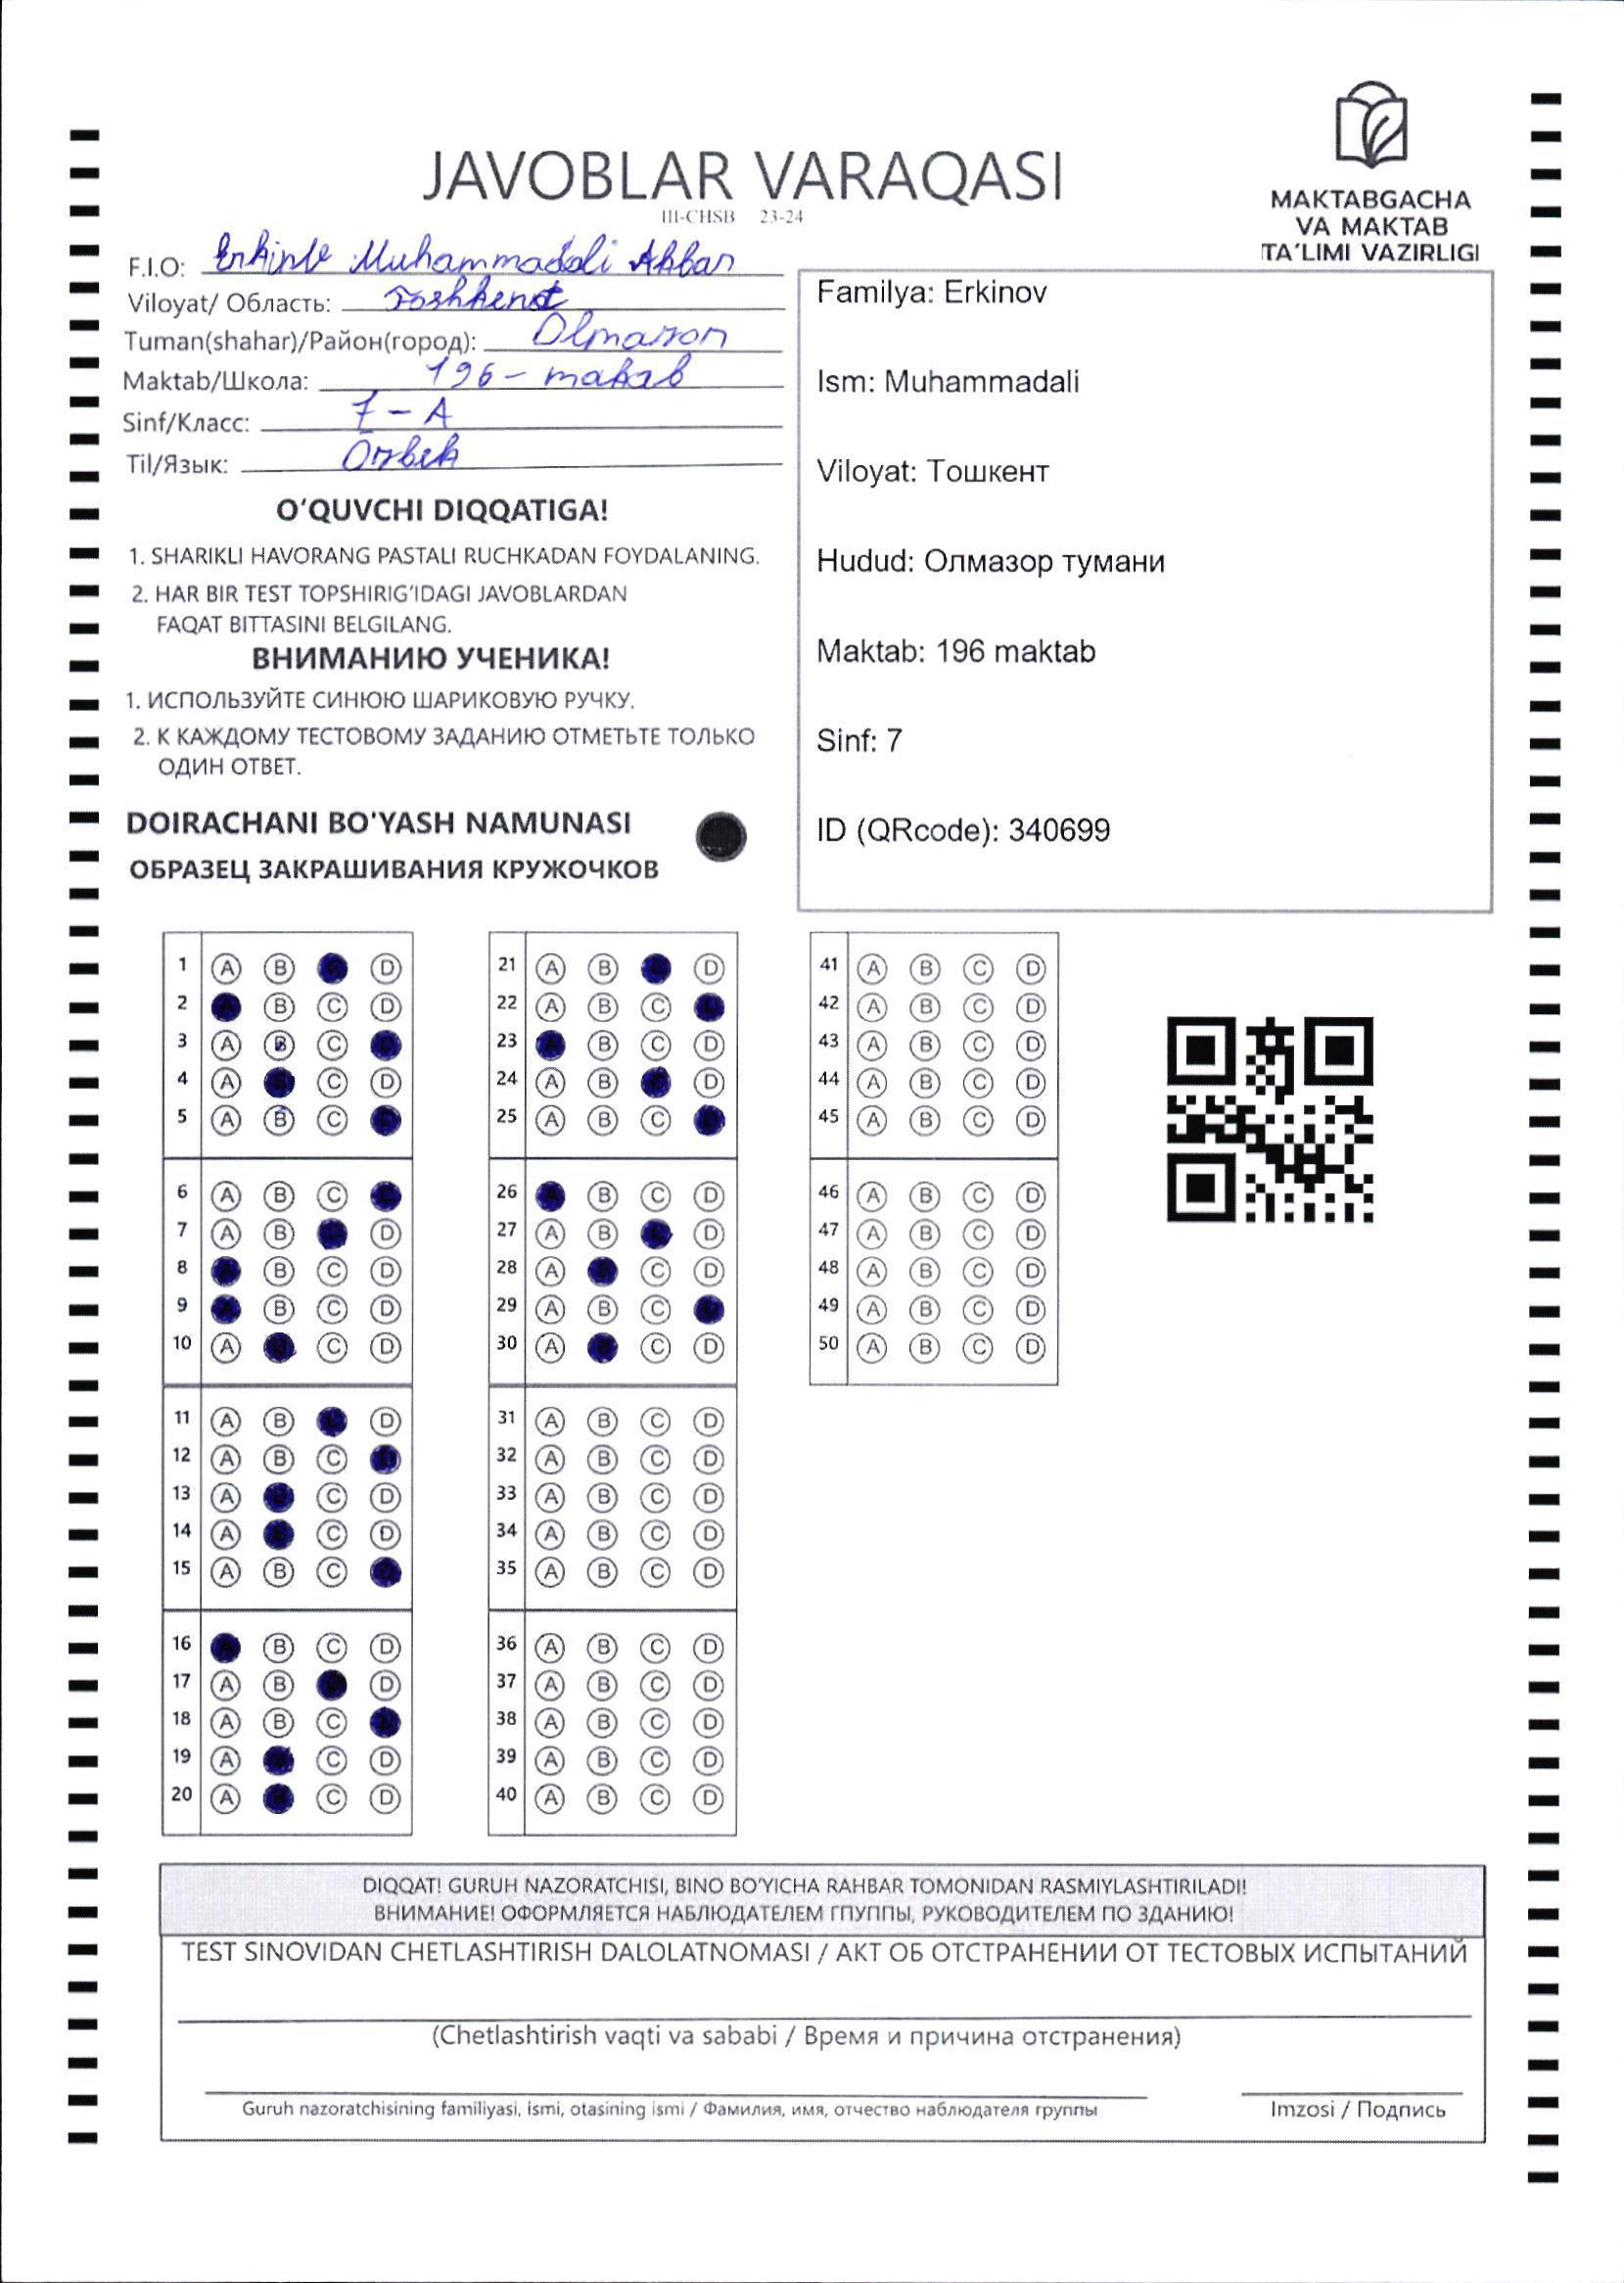 JAVOBLAR VARAQASI
III-CHSB 23-24
MAKTABGACHA
VA MAKTAB
TA'LIMI VAZIRLIGI
F.I.O: Erkinov Muhammadali Akbar
Viloyat/ Область: Toshkent
Tuman(shahar)/Район(город): Olmazor
Maktab/Школа: 196 - maktab
Sinf/Класс: 7 - A
Til/Язык: Ozbek
O'QUVCHI DIQQATIGA!
1. SHARIKLI HAVORANG PASTALI RUCHKADAN FOYDALANING.
2. HAR BIR TEST TOPSHIRIG'IDAGI JAVOBLARDAN
FAQAT BITTASINI BELGILANG.
ВНИМАНИЮ УЧЕНИКА!
1. ИСПОЛЬЗУЙТЕ СИНЮЮ ШАРИКОВУЮ РУЧКУ.
2. К КАЖДОМУ ТЕСТОВОМУ ЗАДАНИЮ ОТМЕТЬТЕ ТОЛЬКО
ОДИН ОТВЕТ.
DOIRACHANI BO'YASH NAMUNASI
ОБРАЗЕЦ ЗАКРАШИВАНИЯ КРУЖОЧКОВ
Familya: Erkinov
Ism: Muhammadali
Viloyat: Тошкент
Hudud: Олмазор тумани
Maktab: 196 maktab
Sinf: 7
ID (QRcode): 340699
1 A B D
2 B C D
3 A B C
4 A C D
5 A B C
6 A B C
7 A B D
8 B C D
9 B C D
10 A C D
11 A B D
12 A B C
13 A C D
14 A C D
15 A B C
16 B C D
17 A B D
18 A B C
19 A C D
20 A C D
21 A B D
22 A B C
23 B C D
24 A B D
25 A B C
26 B C D
27 A B D
28 A C D
29 A B C
30 A C D
31 A B C D
32 A B C D
33 A B C D
34 A B C D
35 A B C D
36 A B C D
37 A B C D
38 A B C D
39 A B C D
40 A B C D
41 A B C D
42 A B C D
43 A B C D
44 A B C D
45 A B C D
46 A B C D
47 A B C D
48 A B C D
49 A B C D
50 A B C D
DIQQAT! GURUH NAZORATCHISI, BINO BO'YICHA RAHBAR TOMONIDAN RASMIYLASHTIRILADI!
ВНИМАНИЕ! ОФОРМЛЯЕТСЯ НАБЛЮДАТЕЛЕМ ГПУППЫ, РУКОВОДИТЕЛЕМ ПО ЗДАНИЮ!
TEST SINOVIDAN CHETLASHTIRISH DALOLATNOMASI / АКТ ОБ ОТСТРАНЕНИИ ОТ ТЕСТОВЫХ ИСПЫТАНИЙ
(Chetlashtirish vaqti va sababi / Время и причина отстранения)
Guruh nazoratchisining familiyasi, ismi, otasining ismi / Фамилия, имя, отчество наблюдателя группы
Imzosi / Подпись